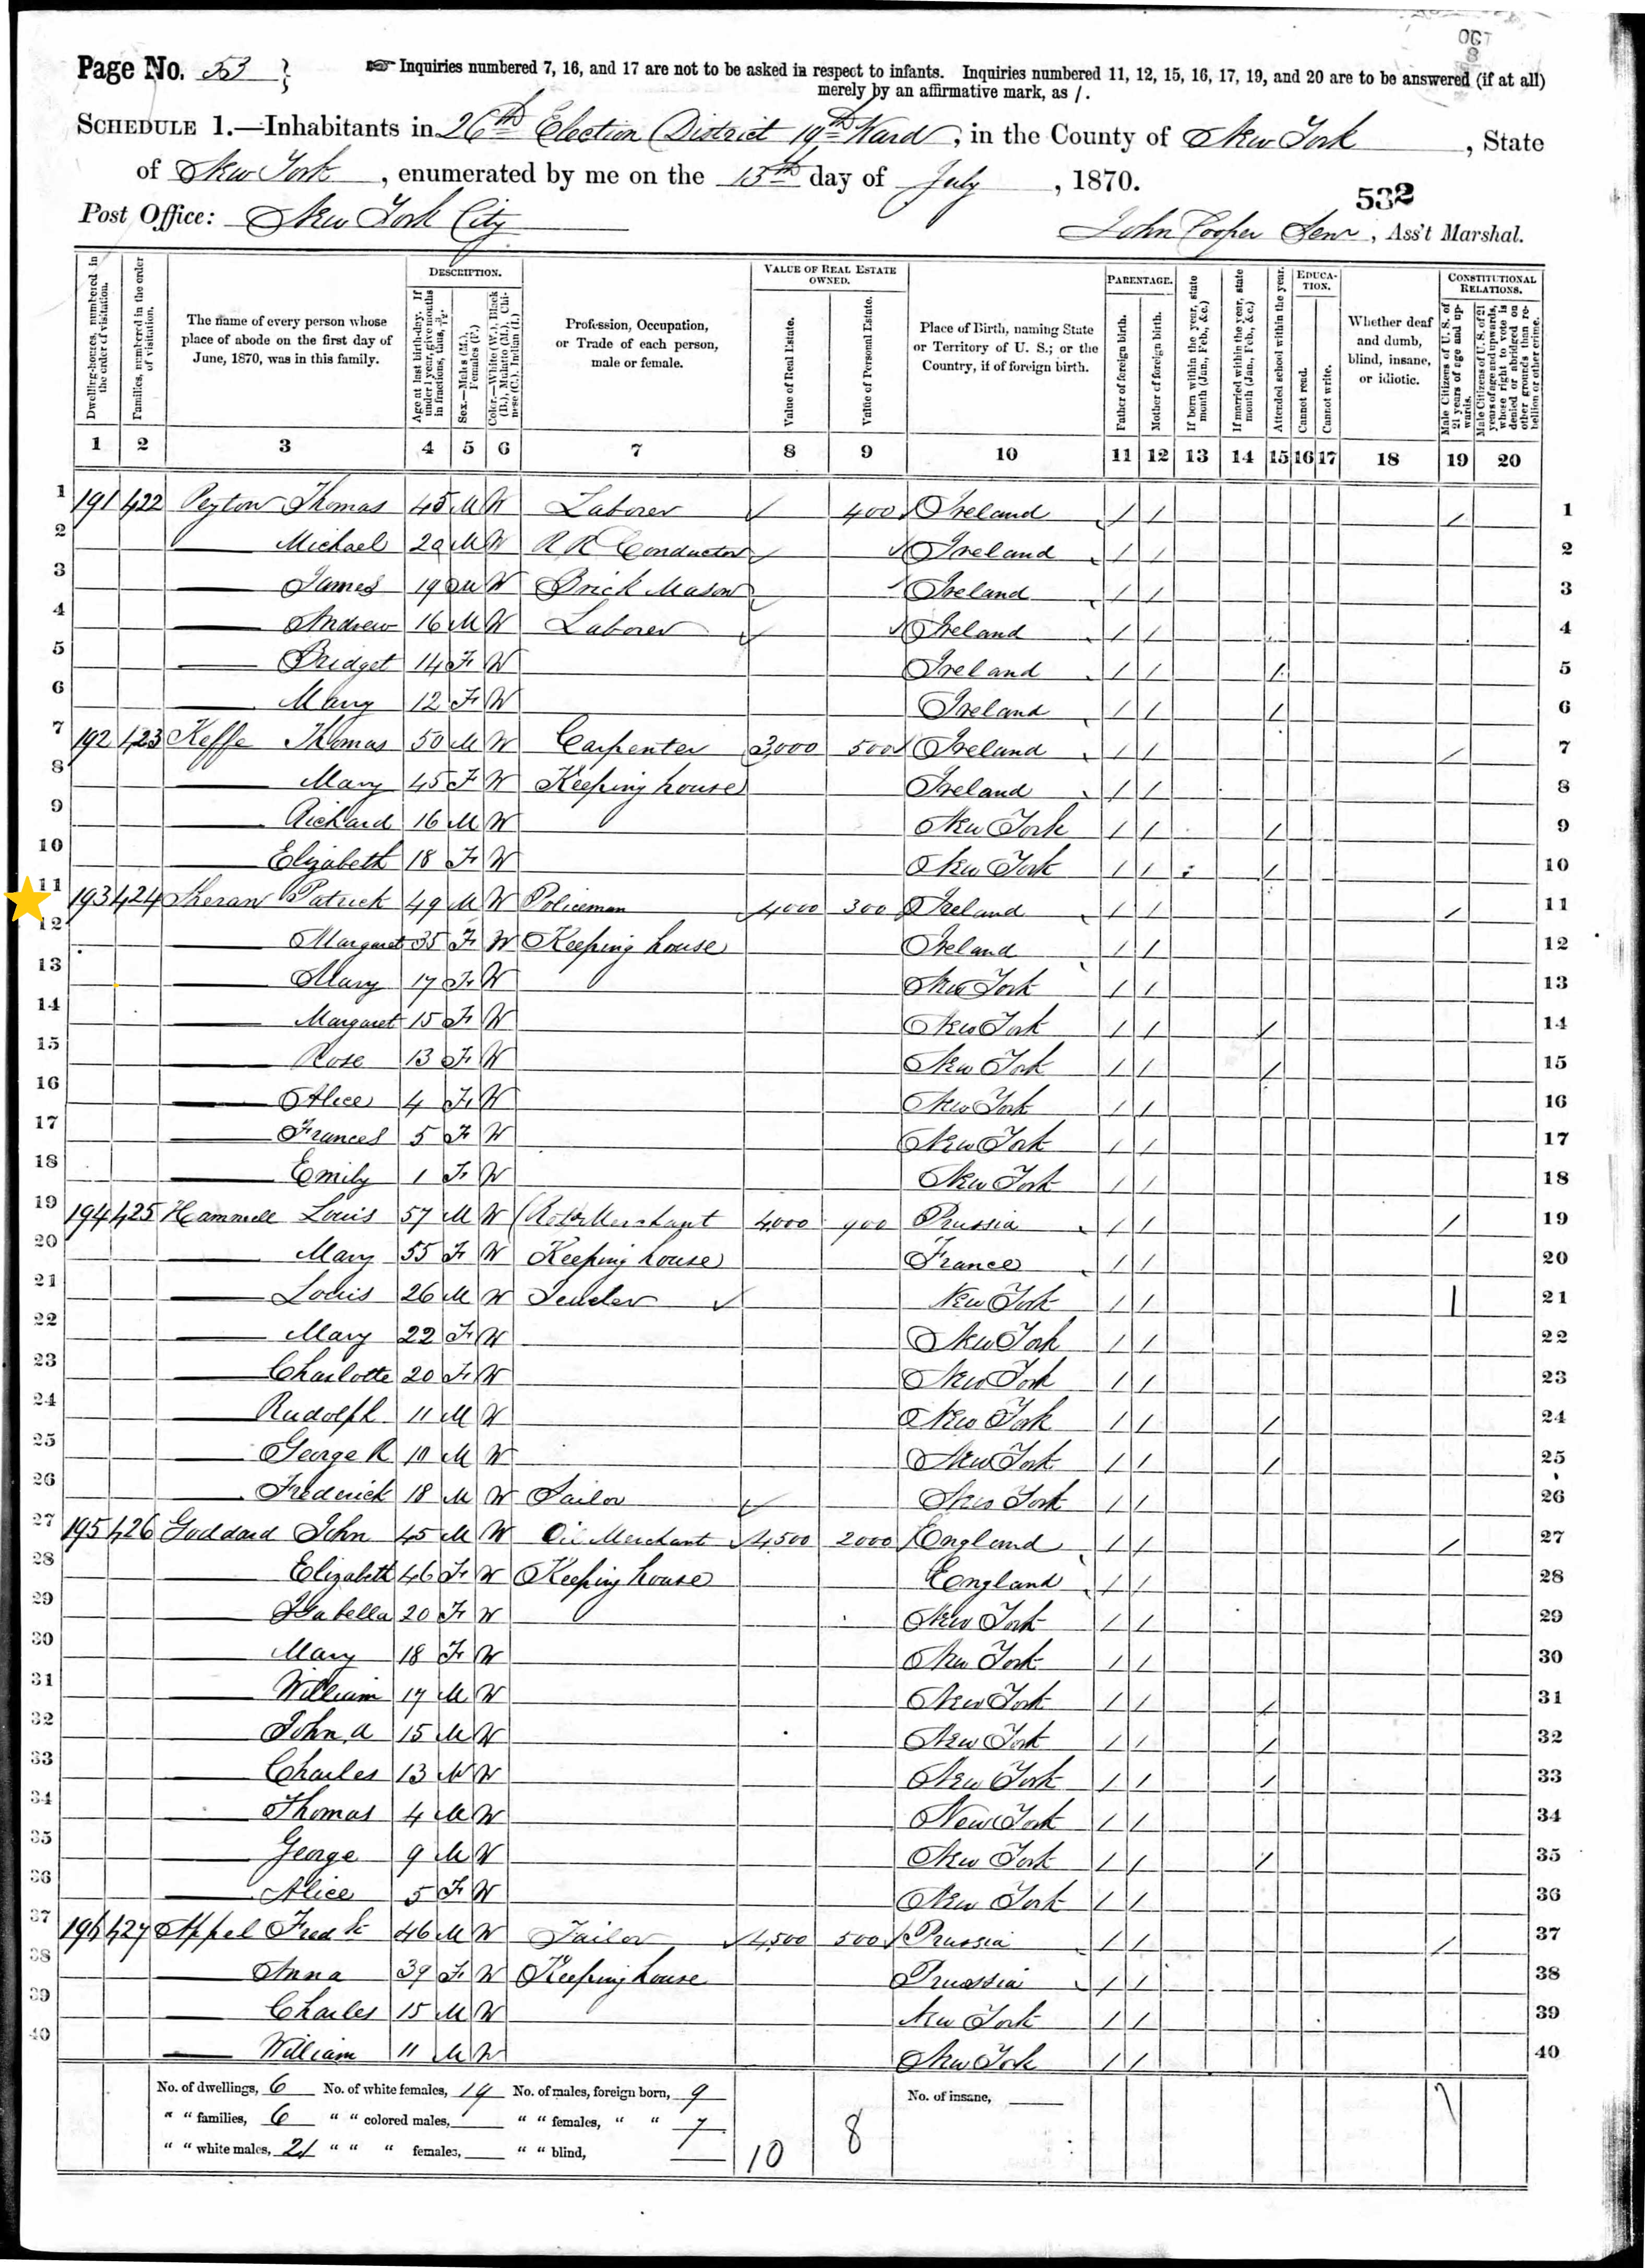 OCT
8
Page No. 53
Inquiries numbered 7, 16, and 17 are not to be asked in respect to infants. Inquiries numbered 11, 12, 15, 16, 17, 19, and 20 are to be answered (if at all)
merely by an affirmative mark, as /.
SCHEDULE 1.—Inhabitants in 26th Election District 19th Ward, in the County of New York, State
of New York, enumerated by me on the 15th day of July, 1870.
532
Post Office: New York City
John Cooper Senr, Ass't Marshal.
Dwelling-houses, numbered in the order of visitation.
Families, numbered in the order of visitation.
The name of every person whose place of abode on the first day of June, 1870, was in this family.
DESCRIPTION.
Age at last birth-day. If under 1 year, give months in fractions, thus, 3/12.
Sex.—Males (M.), Females (F.)
Color.—White (W.), Black (B.), Mulatto (M.), Chinese (C.), Indian (I.)
Profession, Occupation, or Trade of each person, male or female.
VALUE OF REAL ESTATE OWNED.
Value of Real Estate.
Value of Personal Estate.
Place of Birth, naming State or Territory of U. S.; or the Country, if of foreign birth.
PARENTAGE.
Father of foreign birth.
Mother of foreign birth.
If born within the year, state month (Jan., Feb., &c.)
If married within the year, state month (Jan., Feb., &c.)
Attended school within the year.
EDUCATION.
Cannot read.
Cannot write.
Whether deaf and dumb, blind, insane, or idiotic.
CONSTITUTIONAL RELATIONS.
Male Citizens of U. S. of 21 years of age and upwards.
Male Citizens of U. S. of 21 years of age and upwards, whose right to vote is denied or abridged on other grounds than rebellion or other crime.
1 2 3 4 5 6 7 8 9 10 11 12 13 14 15 16 17 18 19 20
1 191 422 Peyton Thomas 45 M W Laborer 400 Ireland / / / 1
2 Michael 29 M W R R Conductor Ireland / / 2
3 James 19 M W Brick Mason Ireland / / 3
4 Andrew 16 M W Laborer Ireland / / 4
5 Bridget 14 F W Ireland / / / 5
6 Mary 12 F W Ireland / / / 6
7 192 423 Keffe Thomas 50 M W Carpenter 3,000 500 Ireland / / / 7
8 Mary 45 F W Keeping house Ireland / / 8
9 Richard 16 M W New York / / / 9
10 Elizabeth 18 F W New York / / / 10
11 193 424 Sheran Patrick 49 M W Policeman 4000 300 Ireland / / / 11
12 Margaret 35 F W Keeping house Ireland / / 12
13 Mary 17 F W New York / / 13
14 Margaret 15 F W New York / / / 14
15 Rose 13 F W New York / / / 15
16 Alice 4 F W New York / / 16
17 Frances 5 F W New York / / 17
18 Emily 1 F W New York / / 18
19 194 425 Hammell Louis 57 M W Merchant 4,000 900 Prussia / / / 19
20 Mary 55 F W Keeping house France / / 20
21 Louis 26 M W New York / / / 21
22 Mary 22 F W New York / / 22
23 Charlotte 20 F W New York / / 23
24 Rudolph 11 M W New York / / / 24
25 George R M W New York / / / 25
26 Frederick 18 M W Sailor New York / / 26
27 195 426 Goddard John 45 M W Oil Merchant 4,500 2000 England / / / 27
28 Elizabeth 46 F W Keeping house England / / 28
29 Isabella 20 F W New York / / 29
30 Mary 18 F W New York / / 30
31 William 17 M W New York / / / 31
32 John A 15 M W New York / / / 32
33 Charles 13 M W New York / / / 33
34 Thomas 4 M W New York / / 34
35 George 9 M W New York / / / 35
36 Alice 5 F W New York / / 36
37 196 427 Appel Fredk 46 M W Tailor 4,500 500 Prussia / / / 37
38 Anna 39 F W Keeping house Prussia / / 38
39 Charles 15 M W New York / / 39
40 William 11 M W New York / / 40
No. of dwellings, 6 No. of white females, 19 No. of males, foreign born, 9 No. of insane,
" " families, 6 " " colored males, " " females, " " 7
" " white males, 21 " " " females, " " blind,
10 8 7